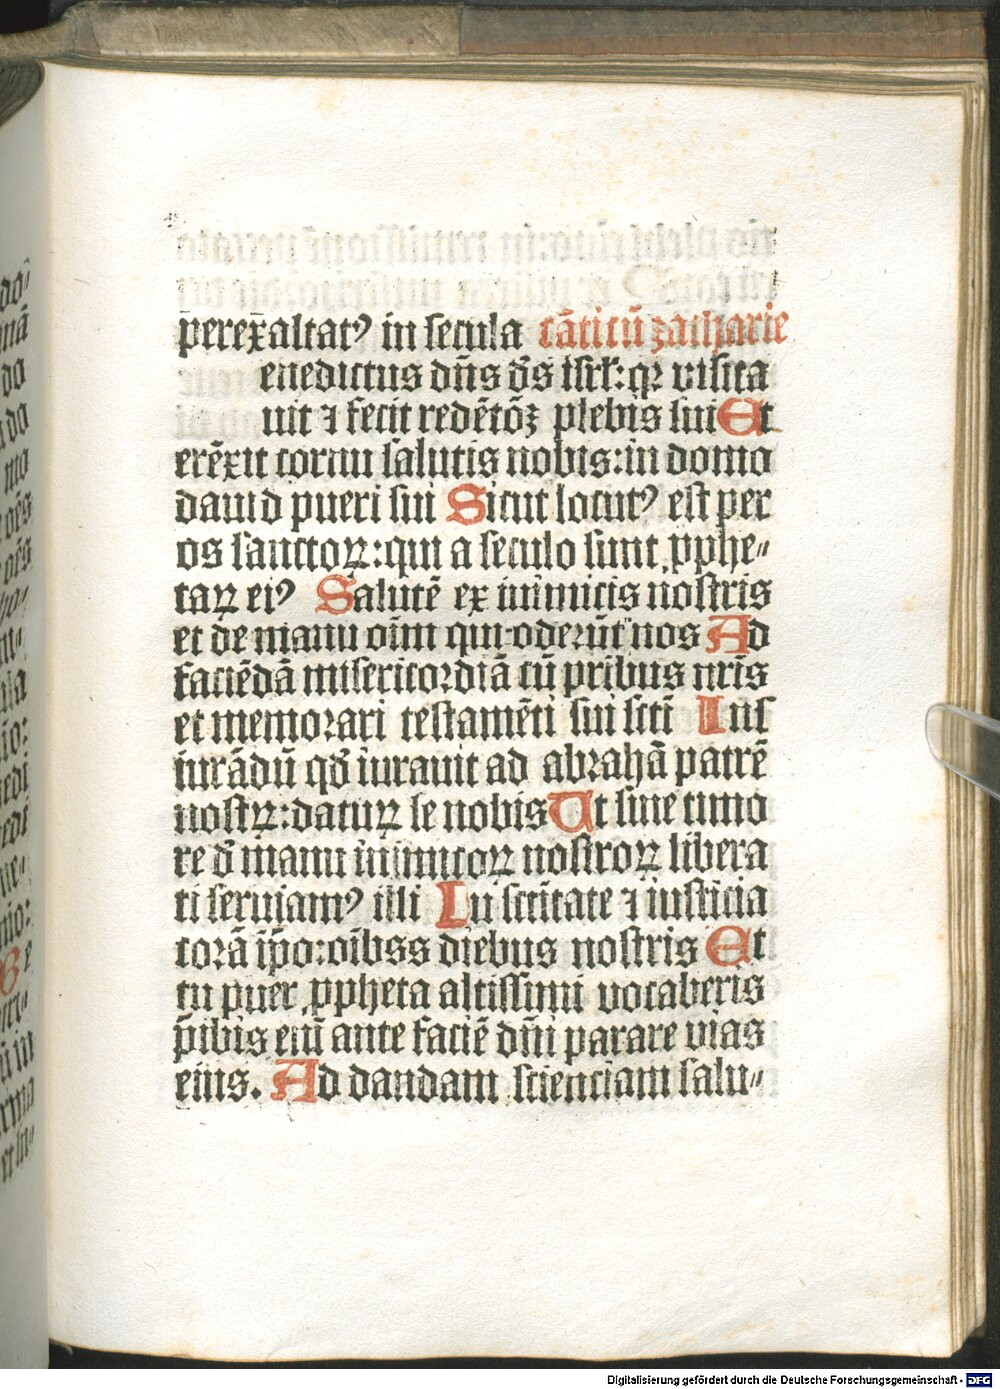 ꝑerex̄altatꝰ in secula cāticū zacharie
enedictus dn̄s ds̄ isrl̄: qꝛ visita
uit ⁊ fecit redēt̄oꝫ plebis sui Et
erēxit cornu salutis nobis: in domo
dauid pueri sui Sicut locutꝰ est per
os sanctoꝝ: qui a seculo sunt ꝓphe⸗
taꝝ eiꝰ Salutē ex inimicis nostris
et de manu oīm qui oderūt nos Ad
faciēdā misericordiā cū pr̄ibus nr̄is
et memorari testamēti sui sctī Ius
iurādū qd̄ iurauit ad abrahā patrē
nostꝝ: daturꝝ se nobis Ut sine timo
re d̄ manu inimicoꝝ nostroꝝ libera
ti seruiamꝰ illi In sctītate ⁊ iusticia
corā ip̄o: oībss diebus nostris Et
tu puer ꝓpheta altissimi vocaberis
p̄ibis eiū ante faciē dn̄i parare vias
eius. Ad dandam scienciam salu⸗
Digitalisierung gefördert durch die Deutsche Forschungsgemeinschaft - DFG